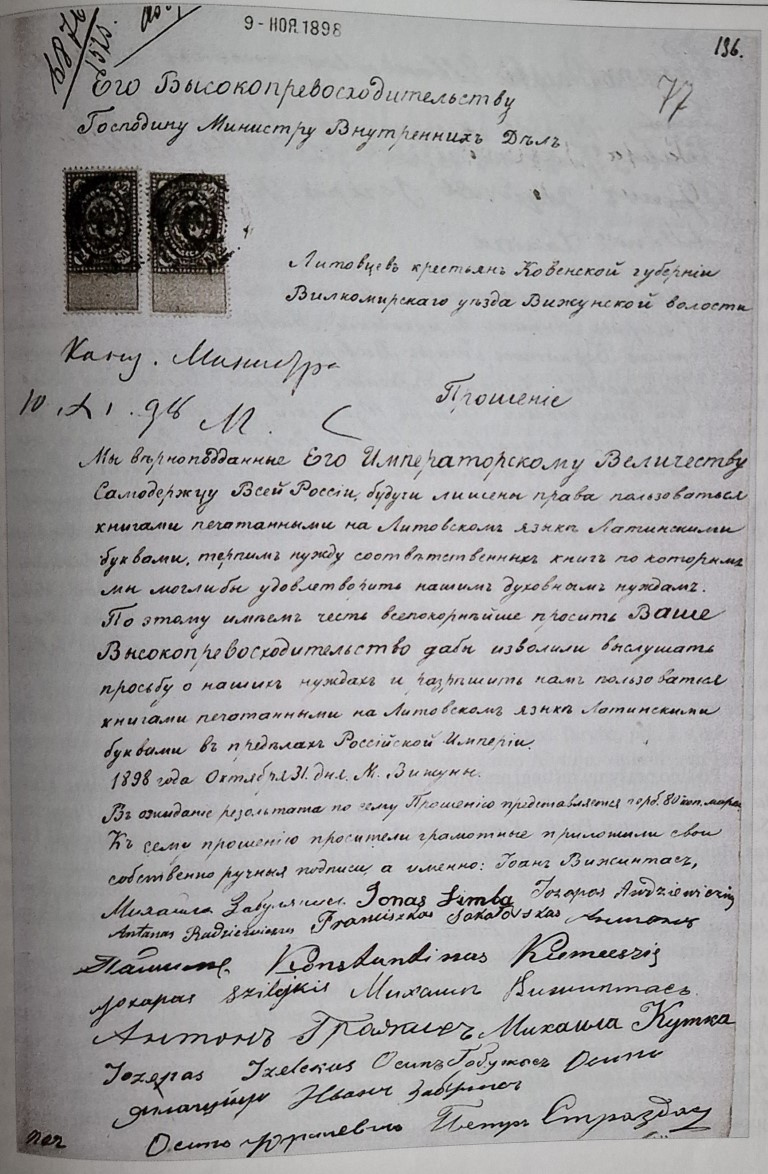 6876
9-НОЯ.1898
196.
77
Его Высокопревосходительству
Господину Министру Внутреннихъ Дѣлъ
Литовцевъ крестьянъ Ковенской губернiи
Вилкомирскаго уѣзда Вижунской волости
Канц. Министра
Прошенiе
10 XI. 98
Мы вѣрноподданные Его Императорскому Величеству
Самодержцу Всей Россiи, будучи лишены права пользоваться
книгами печатанными на Литовскомъ языкѣ Латинскими
буквами, терпимъ нужду соотвѣтственныхъ книгъ по которымъ
мы могли бы удовлетворить нашимъ духовнымъ нуждамъ.
По этому имѣемъ честь всепокорнѣйше просить Ваше
Высокопревосходительство дабы изволили выслушать
просьбу о нашихъ нуждахъ и разрѣшить намъ пользоваться
книгами печатанными на Литовскомъ языкѣ Латинскими
буквами въ предѣлахъ Россiйской Имперiи.
1898 года Октября 31. дня. М. Вижуны.
Въ ожиданiе результата по сему Прошенiю представляется герб. 80 коп. марка
Къ сему прошенiю просители грамотные приложили свои
собственно ручныя подписи, а именно: Iоанъ Вижинтасъ,
Михайла Jonas Limba Jozapas Andziewiczis
Antanas Radziewiczus Franciszkas Sakalovskas Антонъ
Konstantinas
Jozapas Михаилъ Вижинтасъ
Антонъ Михаила Кутка
Jozepas Осипъ Осипъ
Иванъ
Осипъ Петръ Страздасъ